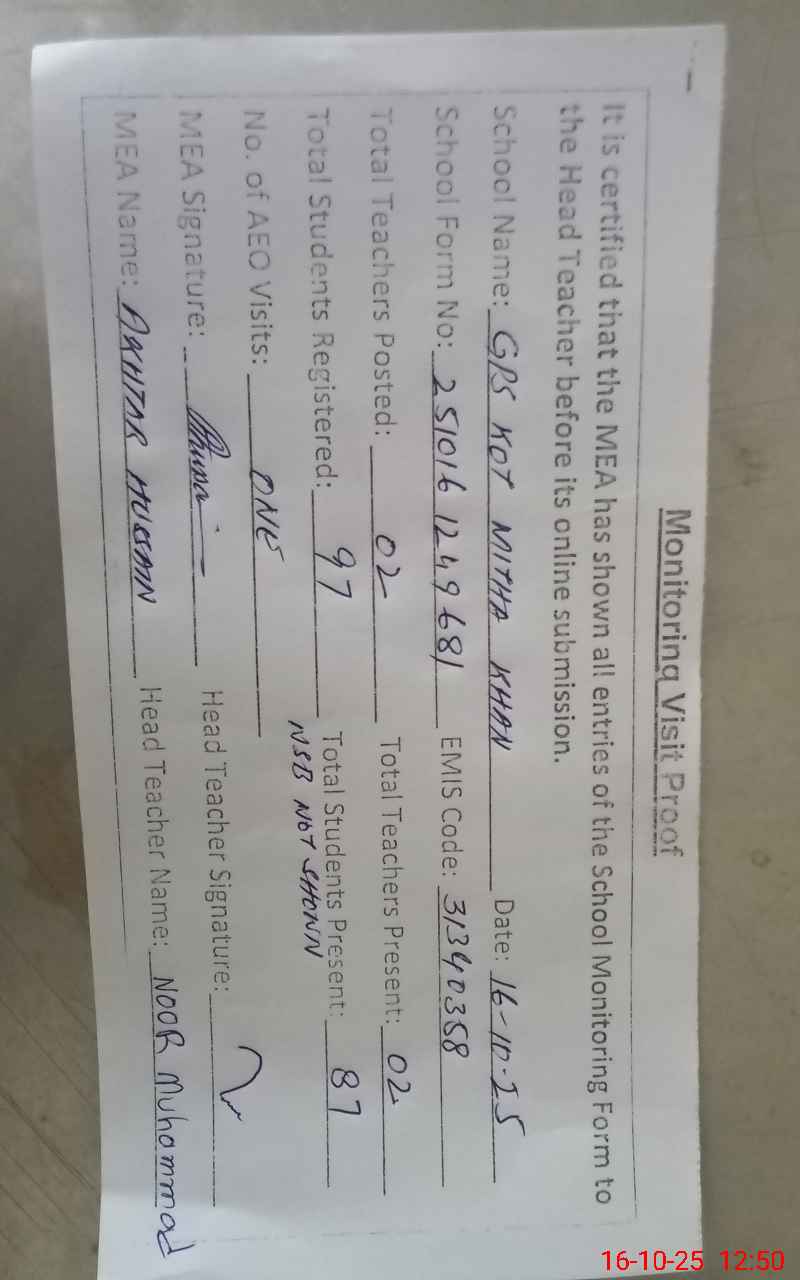 Monitoring Visit Proof
It is certified that the MEA has shown all entries of the School Monitoring Form to
the Head Teacher before its online submission.
School Name: GPS KOT MITHA KHAN Date: 16-10-25
School Form No: 251016 1249681 EMIS Code: 31340358
Total Teachers Posted: 02 Total Teachers Present: 02
Total Students Registered: 97 Total Students Present: 87
No. of AEO Visits: ONE NSB NOT SHOWN
MEA Signature: Head Teacher Signature:
MEA Name: AKHTAR HUSSAIN Head Teacher Name: NOOR Muhammad
16-10-25 12:50